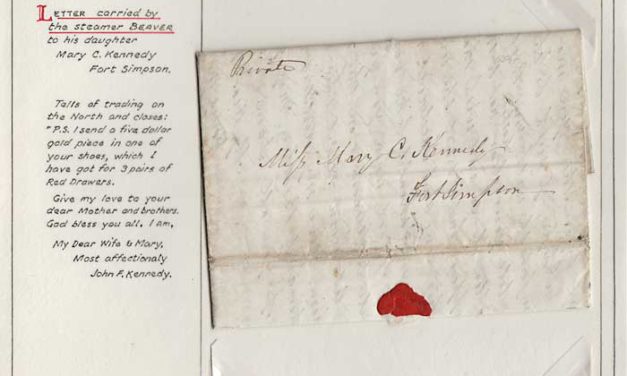 LETTER carried by
the steamer BEAVER
to his daughter
Mary C. Kennedy
Fort Simpson.
Tells of trading on
the North and closes:
"P.S. I send a five dollar
gold piece in one of
your shoes, which I
have got for 3 pairs of
Red Drawers.
Give my love to your
dear Mother and brothers.
God bless you all. I am,
My Dear Wife & Mary,
Most affectionaly
John F. Kennedy.
Private
Miss Mary C. Kennedy
Fort Simpson